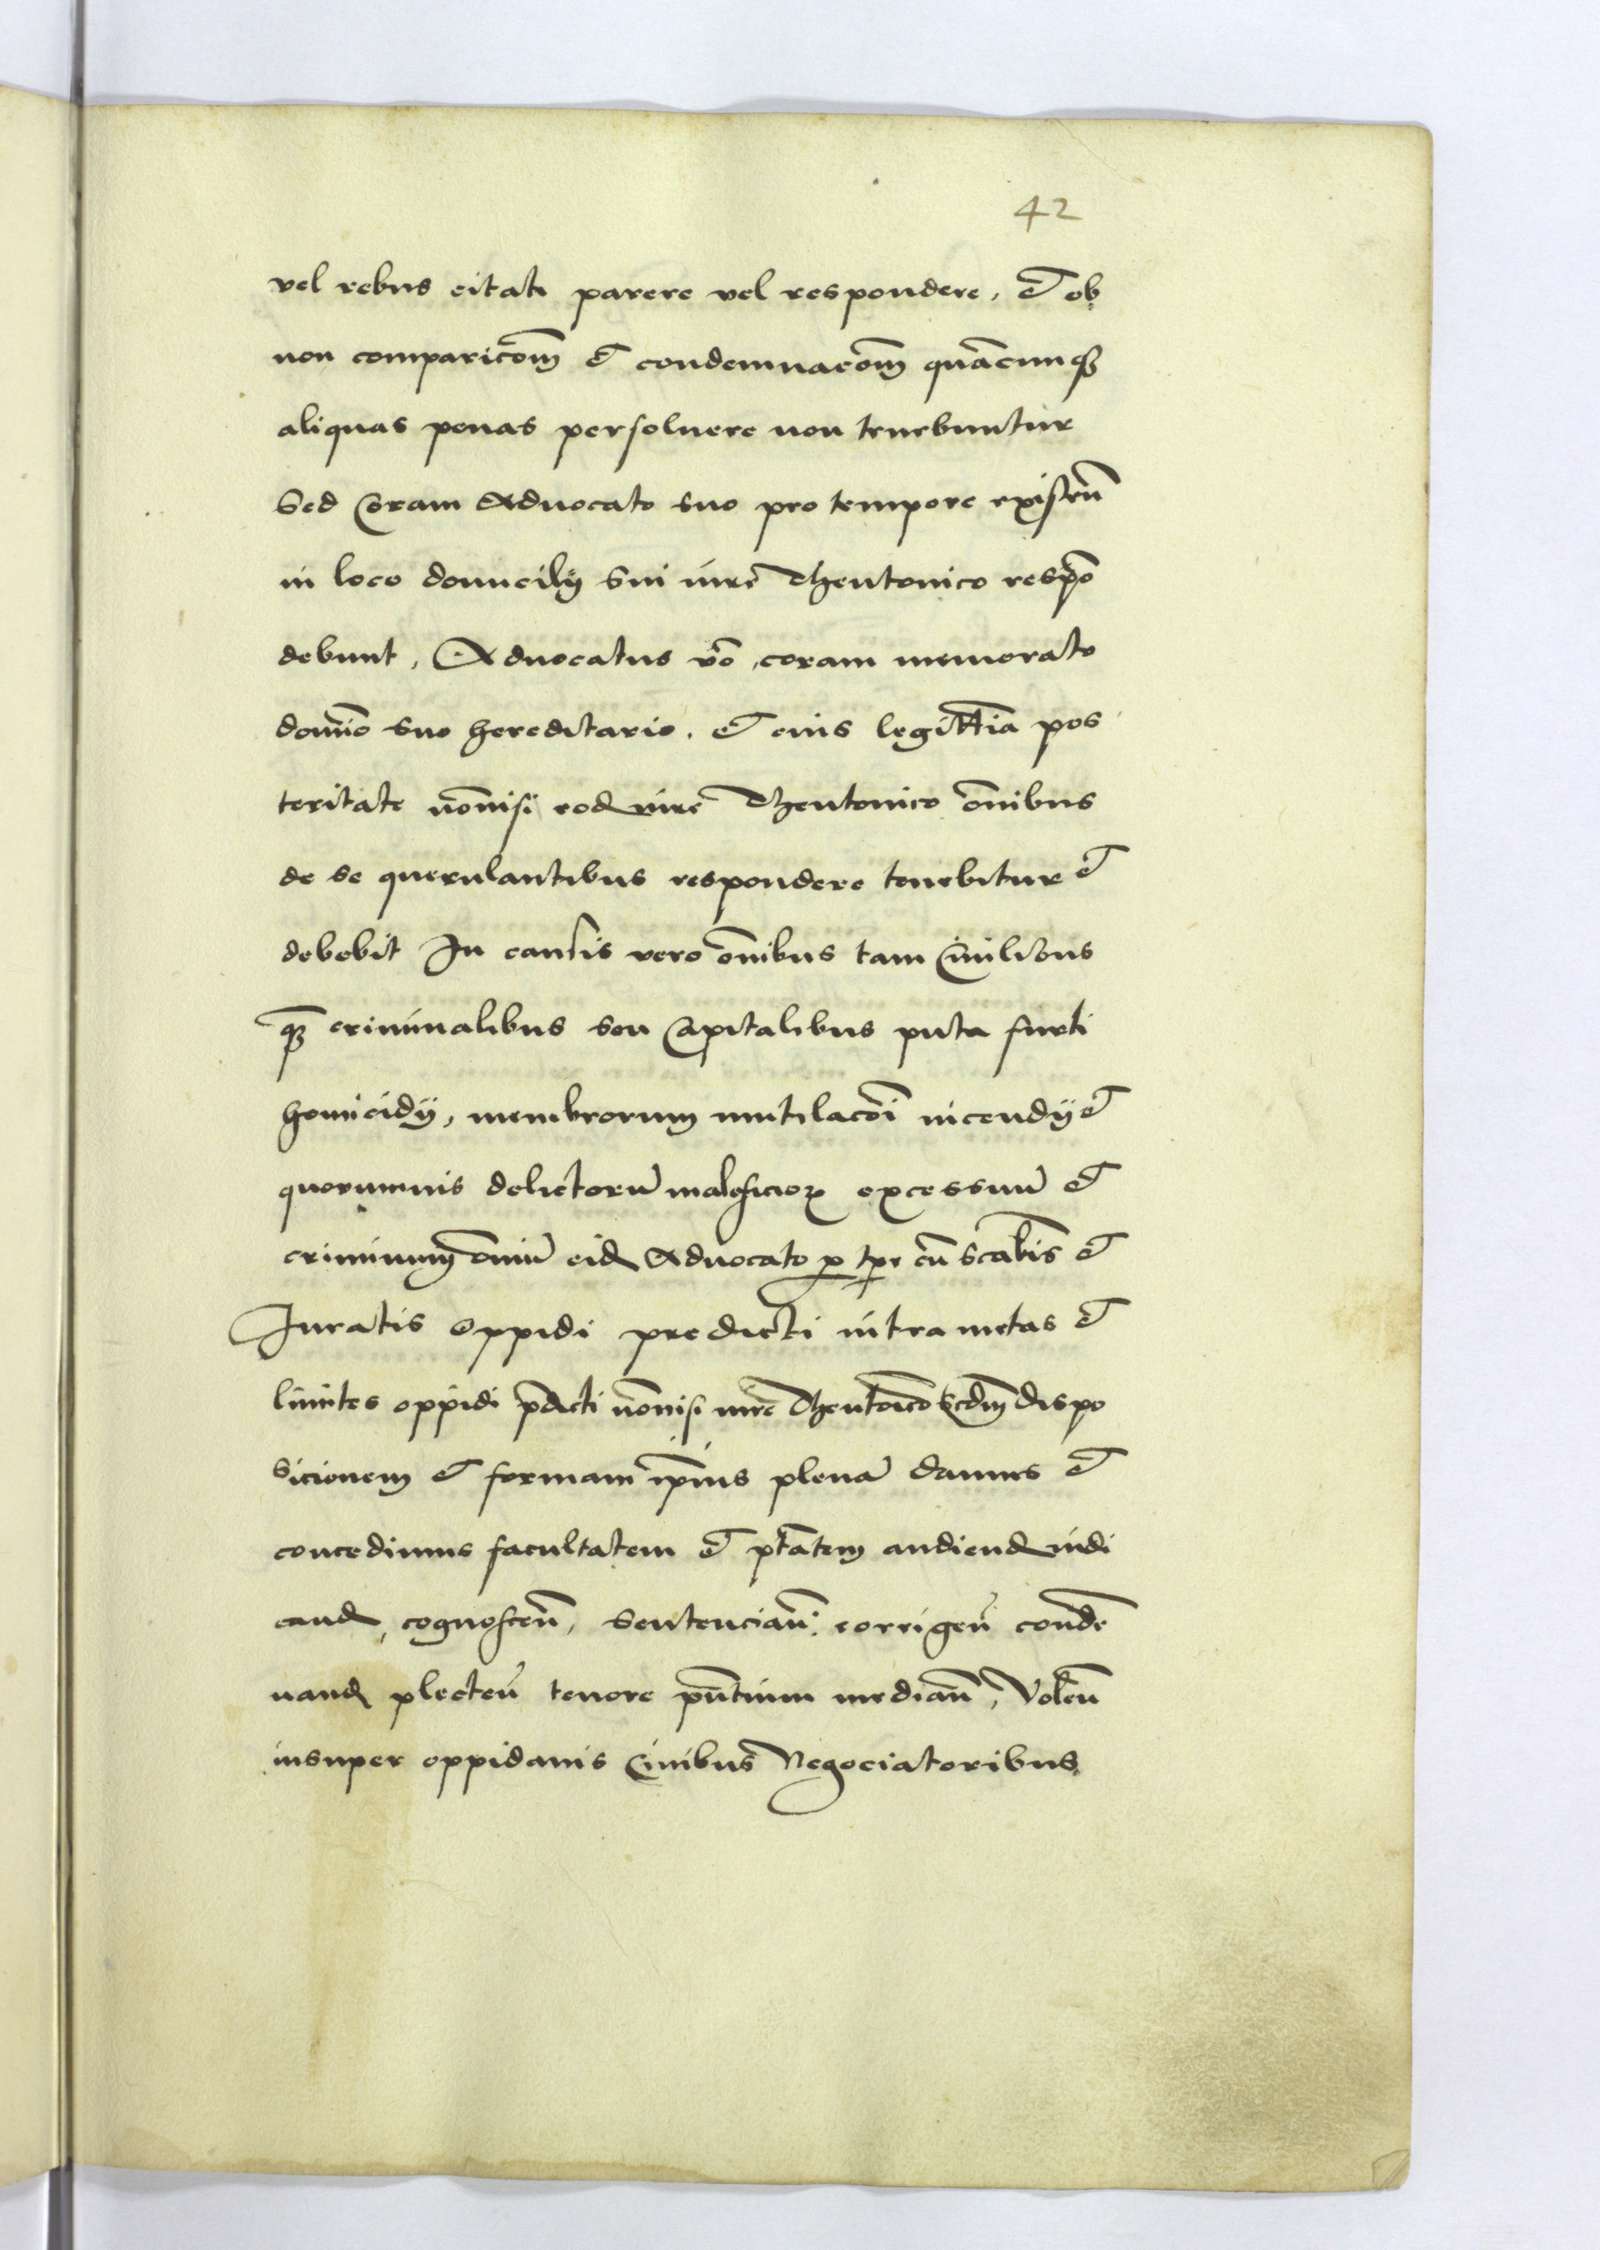 42
vel rebus citati parere vel respondere, et ob
non comparicõm et condemnacõm quãcunqʒ
aliquas penas persoluere non tenebuntur
Sed Coram Aduocato suo pro tempore existeñ
in loco domicilÿ sui iure Theutonico respõ
debunt, Aduocatus võ, coram memorato
domĩo suo hereditario. et eius legittĩa pos
teritate nõnisi eod iure Theutonico õnibus
de se querulantibus respondere tenebitur et
debebit In causis vero õnibus tam Ciuilibus
qʒ criminalibus seu Capitalibus puta furti
homicidÿ, membrorum mutilacõi incendÿ et
quorumuis delictorũ maleficioꝝ excessuũ et
criminum õniũ eid Aduocato p tpe cũ Scabĩs et
Juratis oppidi predicti intra metas et
limites oppidi p̃dicti nõnisi iure Theutoĩco Scdm̃ dispo
sicionem et formam ip̃ius plenã damus et
concedimus facultatem et ptãtem audiend iudi
cand, cognosceñ, Sentenciañ, corrigeñ condẽ
nand plecteñ tenore pñtium mediañ, Voleñ
insuper oppidanis Ciuibus Negociatoribus